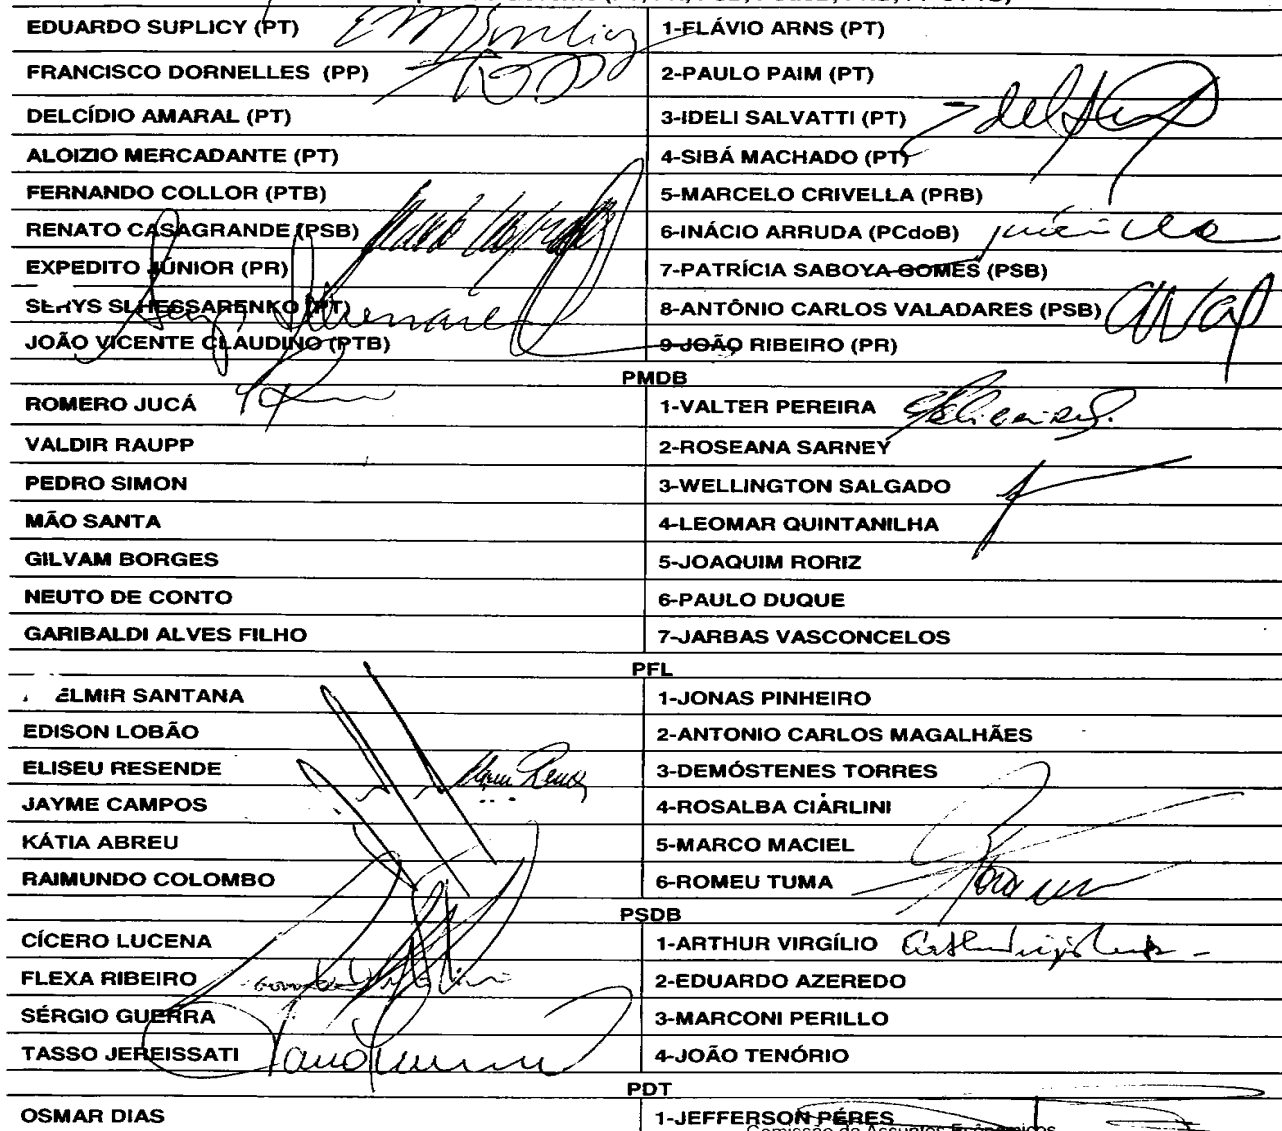 EDUARDO SUPLICY (PT) 1-FLÁVIO ARNS (PT)
FRANCISCO DORNELLES (PP) 2-PAULO PAIM (PT)
DELCÍDIO AMARAL (PT) 3-IDELI SALVATTI (PT)
ALOIZIO MERCADANTE (PT) 4-SIBÁ MACHADO (PT)
FERNANDO COLLOR (PTB) 5-MARCELO CRIVELLA (PRB)
RENATO CASAGRANDE (PSB) 6-INÁCIO ARRUDA (PCdoB)
EXPEDITO JÚNIOR (PR) 7-PATRÍCIA SABOYA GOMES (PSB)
SERYS SLHESSARENKO (PT) 8-ANTÔNIO CARLOS VALADARES (PSB)
JOÃO VICENTE CLAUDINO (PTB) 9-JOÃO RIBEIRO (PR)
PMDB
ROMERO JUCÁ 1-VALTER PEREIRA
VALDIR RAUPP 2-ROSEANA SARNEY
PEDRO SIMON 3-WELLINGTON SALGADO
MÃO SANTA 4-LEOMAR QUINTANILHA
GILVAM BORGES 5-JOAQUIM RORIZ
NEUTO DE CONTO 6-PAULO DUQUE
GARIBALDI ALVES FILHO 7-JARBAS VASCONCELOS
PFL
ELMIR SANTANA 1-JONAS PINHEIRO
EDISON LOBÃO 2-ANTONIO CARLOS MAGALHÃES
ELISEU RESENDE 3-DEMÓSTENES TORRES
JAYME CAMPOS 4-ROSALBA CIARLINI
KÁTIA ABREU 5-MARCO MACIEL
RAIMUNDO COLOMBO 6-ROMEU TUMA
PSDB
CÍCERO LUCENA 1-ARTHUR VIRGÍLIO
FLEXA RIBEIRO 2-EDUARDO AZEREDO
SÉRGIO GUERRA 3-MARCONI PERILLO
TASSO JEREISSATI 4-JOÃO TENÓRIO
PDT
OSMAR DIAS 1-JEFFERSON PÉRES
Comissão de Assuntos Econômicos